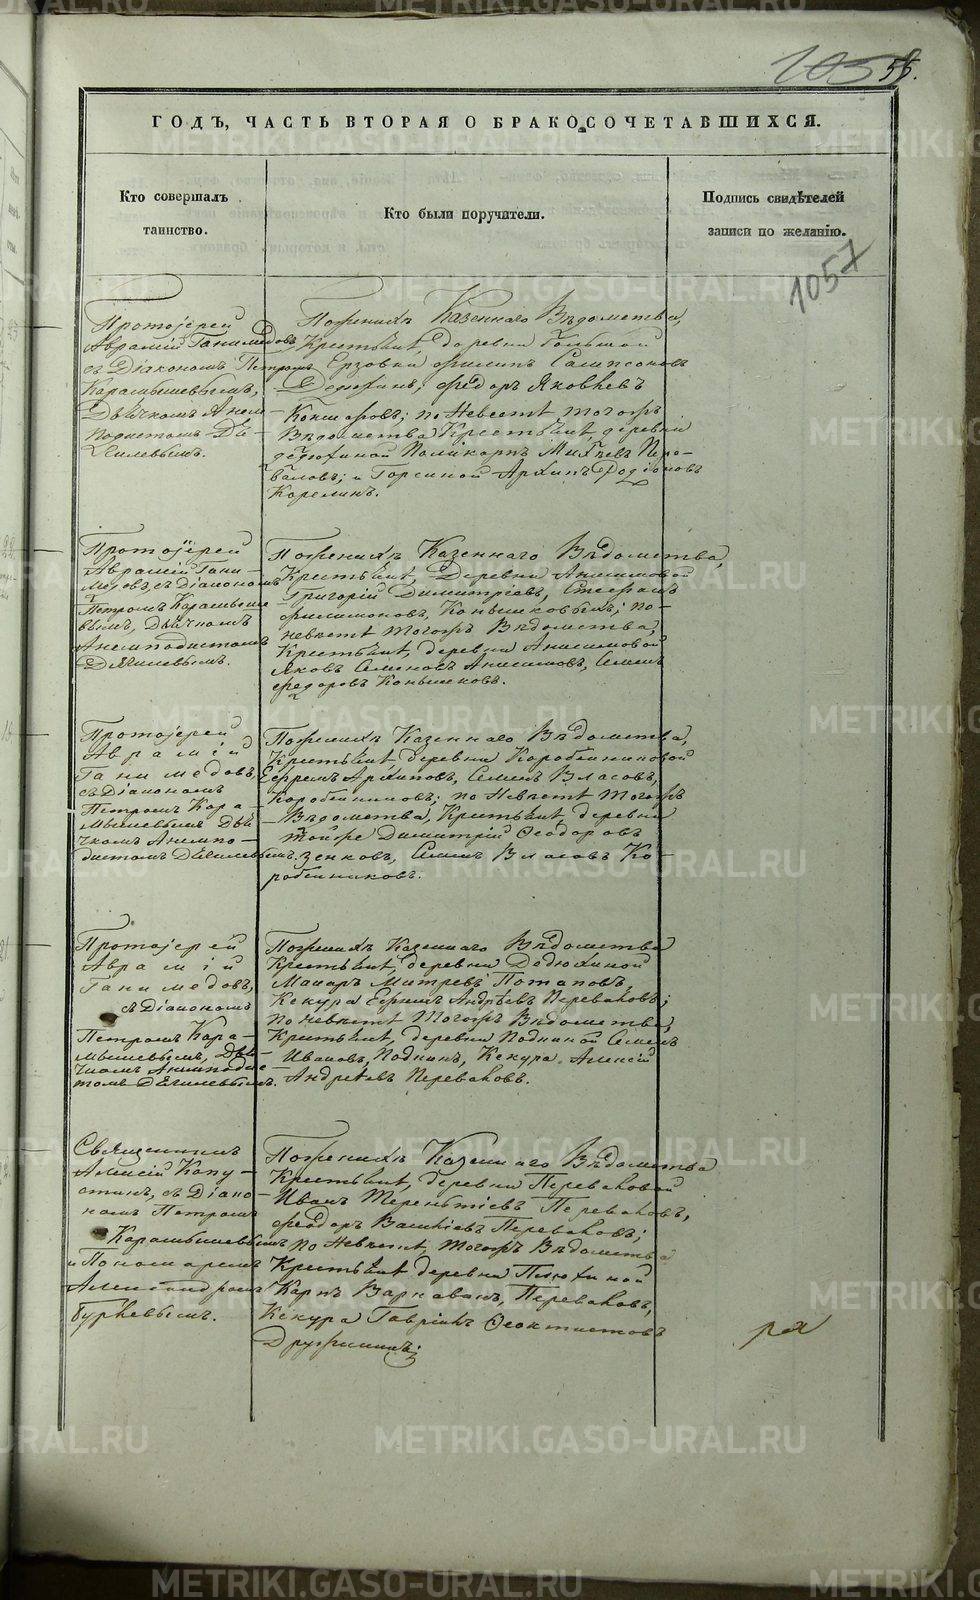 55.
ГОДЪ, ЧАСТЬ ВТОРАЯ О БРАКОСОЧЕТАВШИХСЯ.
Кто совершалъ
таинство.
Кто были поручители.
Подпись свидѣтелей
записи по желанію.
1057
Протоіерей
Аврамій Ганимедовъ
съ Діакономъ Петромъ
Карамышевымъ,
Дьячкомъ Анем-
подистомъ
По женихѣ Казеннаго Вѣдомства,
Крестьяне, деревни Большой
Ерзовки Филипъ Сампсоновъ
Федоръ Яковлевъ
по Невестѣ тогожъ
Вѣдомства Крестьяне деревни
Поликарпъ Михѣевъ Пере-
валовъ; и Архипъ Родіоновъ
Корелинъ.
Протоіерей
Аврамій Гани-
медовъ, съ Діакономъ
Петромъ Карамыше-
вымъ, Дьячкомъ
Анемподистомъ
По женихѣ Казеннаго Вѣдомства,
Крестьяне, Деревни Анисимовой
Григорій Димитріевъ, Стефанъ
Филимоновъ, Коньшековы; по
невестѣ тогожъ Вѣдомства,
Крестьяне, деревни Анисимовой
Яковъ Семеновъ Анисимовъ, Семенъ
Федоровъ Коньшековъ.
Протоіерей
Аврамій
Ганимедовъ,
съ Діакономъ
Петромъ Кара-
мышевымъ Дья-
чкомъ Анемпо-
дистомъ
По женихѣ Казеннаго Вѣдомства,
Крестьяне, деревни Коробейниковой
Ефремъ Архиповъ, Семенъ Власовъ,
Коробейниковъ; по Невестѣ тогожъ
Вѣдомства, Крестьяне, деревни
Димитрій Феодоровъ
Зенковъ, Семенъ Власовъ Ко-
робейниковъ.
Протоіерей
Аврамій
Ганимедовъ,
съ Діакономъ
Петромъ Кара-
мышевымъ, Дья-
чкомъ Анемподис-
томъ
По женихѣ Казеннаго Вѣдомства
Крестьяне, деревни Дедюхиной
Макаръ Митревъ Потаповъ,
Кекура Ефимъ Андрѣевъ Переваловъ;
по невестѣ тогожъ Вѣдомства,
Крестьяне, деревни Подкиной Семенъ
Ивановъ Подкинъ, Кекура Алексій
Андреевъ Переваловъ.
Священникъ
Алексій Капу-
стинъ, съ Діако-
номъ Петромъ
Карамышевымъ
и Пономаремъ
Александромъ
По женихѣ Казеннаго Вѣдомства
Крестьяне, деревни Переваловой
Иванъ Терентіевъ Переваловъ,
Феодоръ Переваловъ;
по Невестѣ тогожъ Вѣдомства
Крестьяне деревни
Карпъ Переваловъ,
Кекура Гавріилъ Феоктистовъ
Дружининъ;
METRIKI.GASO-URAL.RU